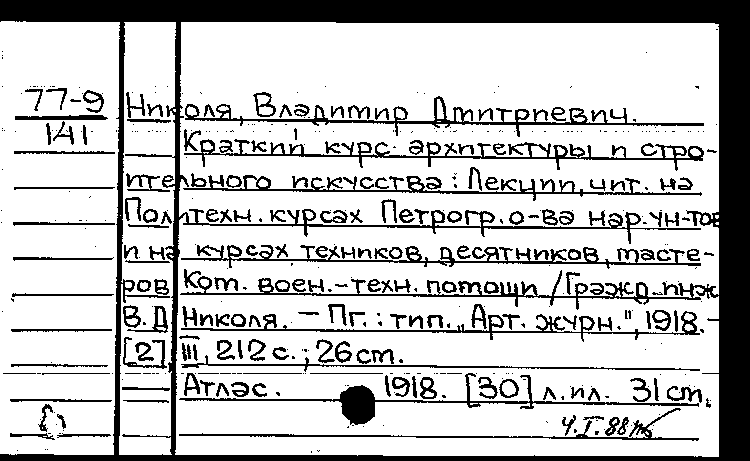 77-9 Николя, Владимир Дмитриевич.
141 Краткий курс архитектуры и стро-
ительного искусства: Лекции, чит. на
Политехн. курсах Петрогр. о-ва нар. ун-тов
и на курсах техников, десятников, масте-
ров Ком. воен.-техн. помощи / Гражд. инж
В.Д Николя. – Пг.: тип. „Арт. журн.", 1918. –
[2], III, 212 с.; 26 cm.
Атлас. 1918. [30] л. ил. 31 cm.
4.I.88